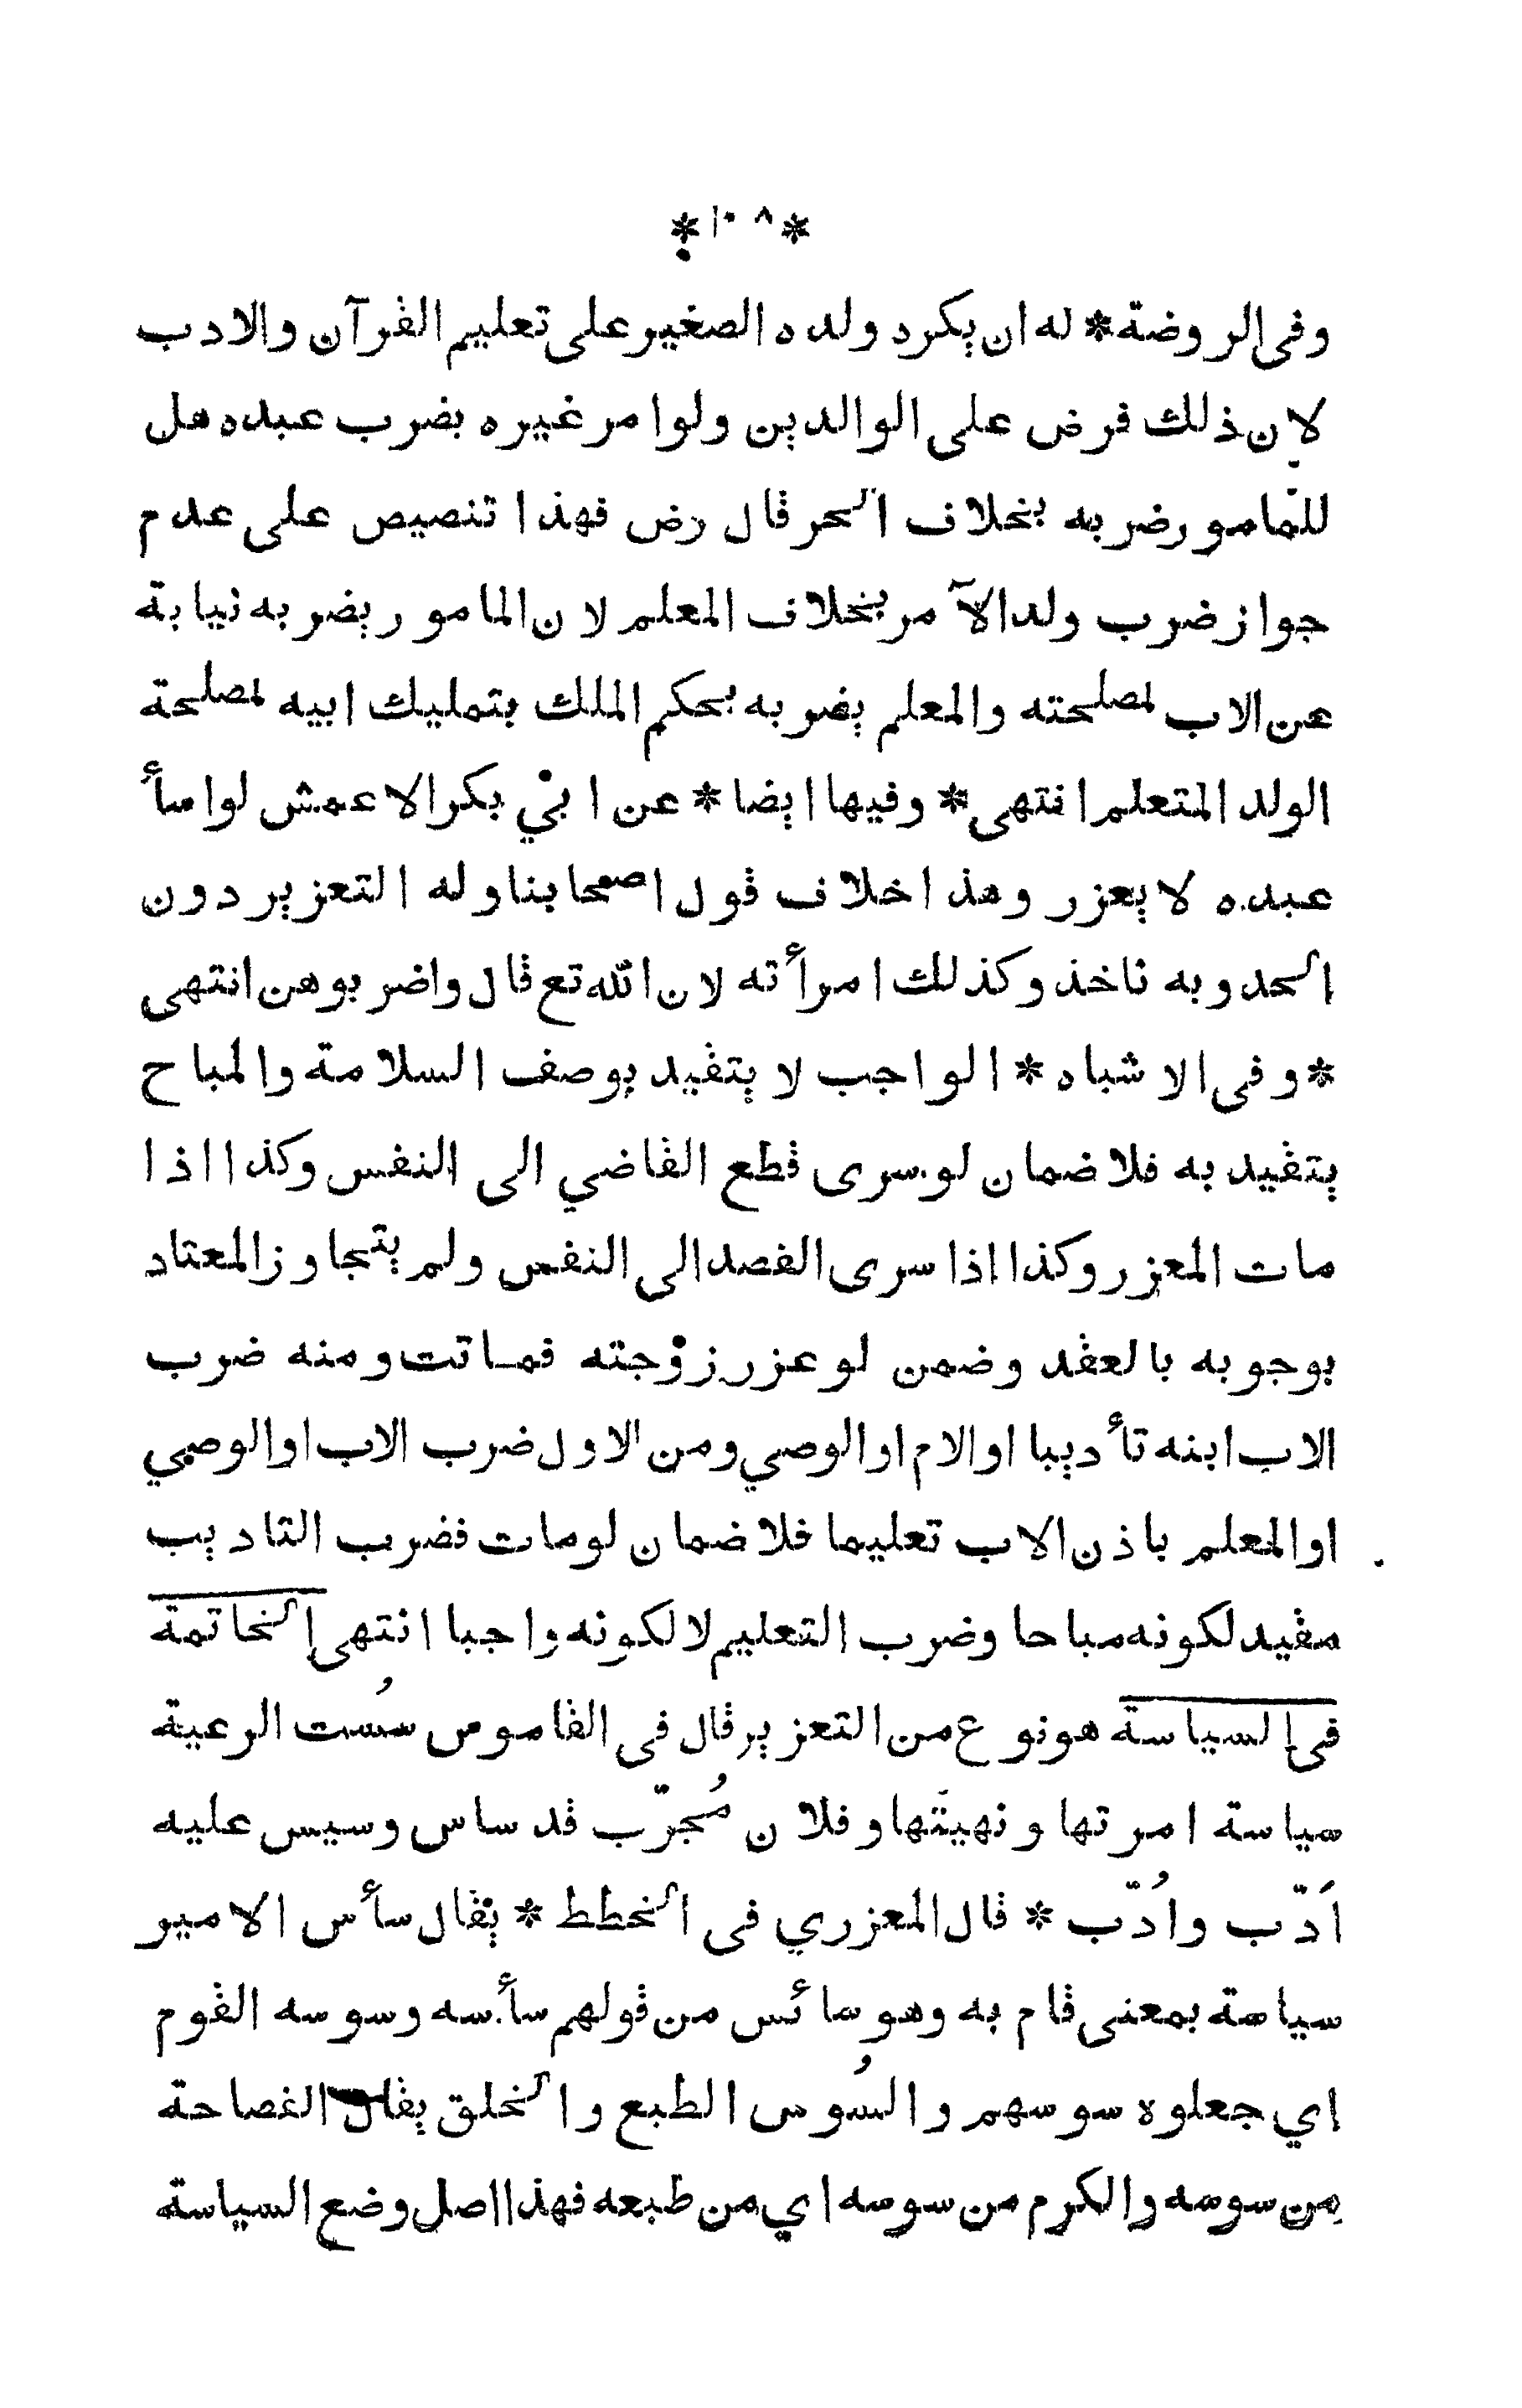 * ١٠٨ *
وفى الروضة * له ان يكره ولده الصغير على تعليم القرآن والادب
لان ذلك فرض على الوالدين ولوا مر غيره بضرب عبده هل
للمامور ضربه بخلاف الحر قال رض فهذا تنصيص على عدم
جواز ضرب ولد الآمر بخلاف المعلم لان المامور يضربه نيابة
عن الاب لمصلحته والمعلم يضربه بحكم الملك بتمليك ابيه لمصلحة
الولد المتعلم انتهى * وفيها ايضا * عن ابي بكر الاعمش لو اسأ
عبده لا يعزر وهذا خلاف قول اصحابنا وله التعزير دون
الحد وبه ناخذ وكذلك امرأته لان الله تع قال واضربوهن انتهى
* وفى الاشباه * الواجب لا يتقيد بوصف السلامة والمباح
يتقيد به فلا ضمان لو سرى قطع القاضي الى النفس وكذا اذا
مات المعزر وكذا اذا سرى الفصد الى النفس ولم يتجاوز المعتاد
بوجوبه بالعقد وضمن لو عزر زوجته فماتت ومنه ضرب
الاب ابنه تأديبا او الام او الوصي ومن الاول ضرب الاب او الوصي
او المعلم باذن الاب تعليما فلا ضمان لومات فضرب التاديب
مقيد لكونه مباحا وضرب التعليم لا لكونه واجبا انتهى الخاتمة
فى السياسة هو نوع من التعزير قال فى القاموس سُست الرعية
سياسة امرتها ونهيتَها وفلان مُجرّب قد ساس وسيس عليه
اَدّب واُدّب * قال المعزري فى الخطط * يقال سأس الامير
سياسة بمعنى قام به وهو سائس من قولهم سأسه وسوسه القوم
اي جعلوه سوسهم والسُوس الطبع والخلق يقال الفصاحة
من سوسه والكرم من سوسه اي من طبعه فهذا اصل وضع السياسة